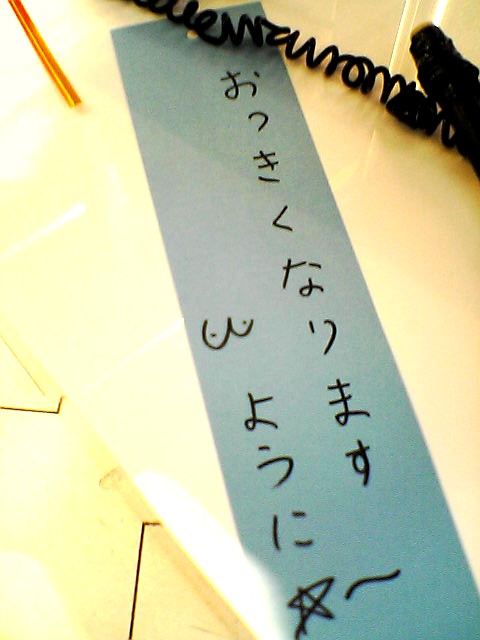 おっきくなります
ように☆〜